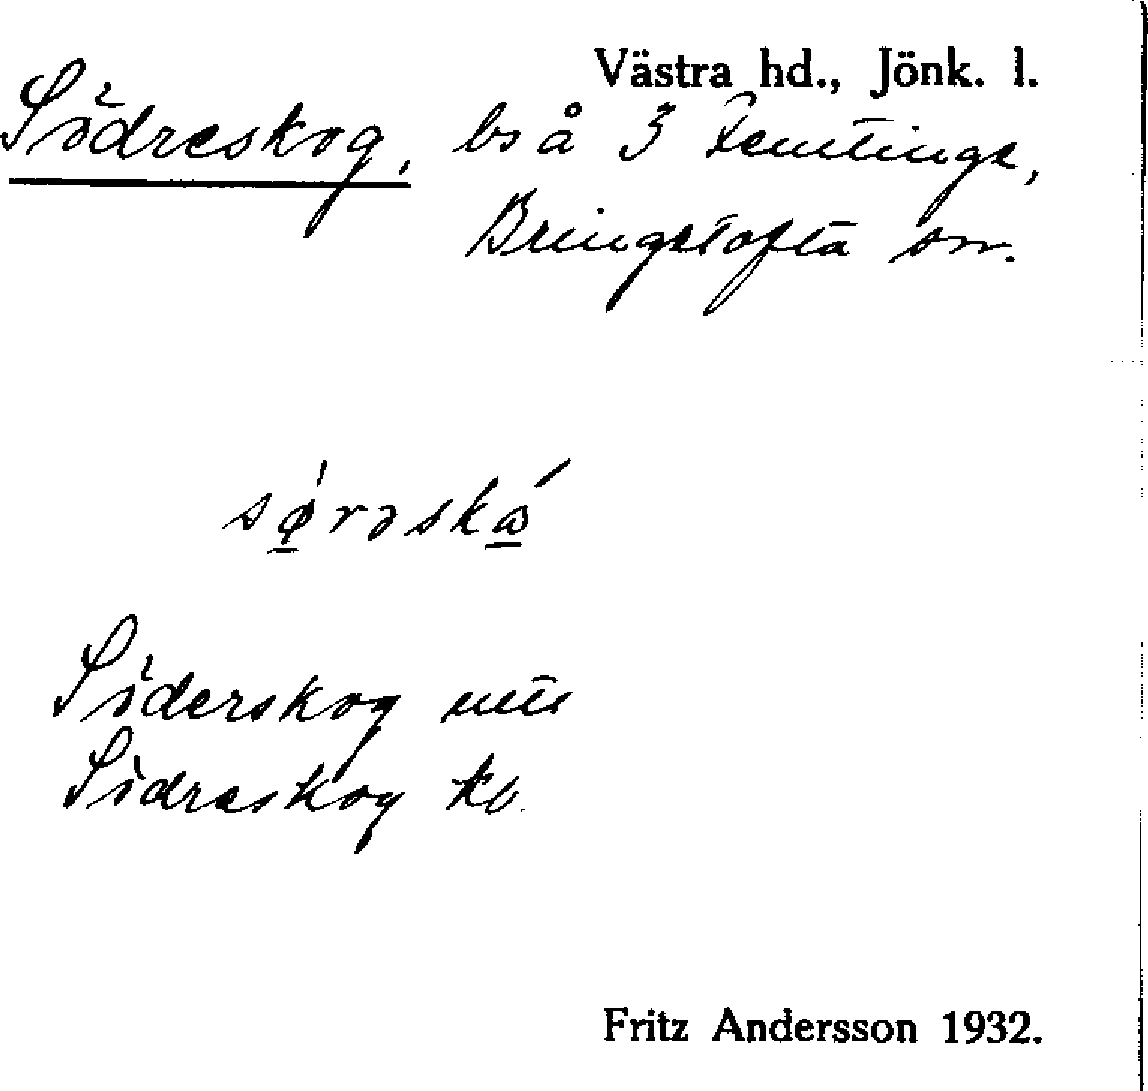 Västra hd., Jönk. l.
Södreskog, bs å 3 Femtinge,
Bringetofta sn.
sǿ̱rəskώ̱
Söderskog
Södreskog kb.
Fritz Andersson 1932.